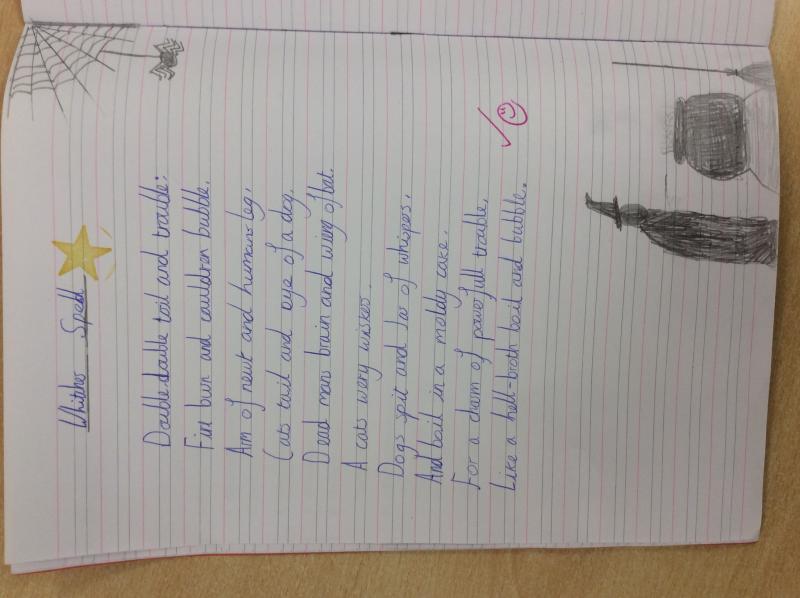 Whiches Spell
Double double toil and trouble;
Fire burn and cauldron bubble.
Arm of newt and humans leg,
Cats tail and eye of a dog.
Dead mans brain and wing of bat.
A cats wery wisker.
Dogs spit and Jar of whispers,
And boil in a moldy cake.
For a charm of powerfull trouble,
Like a hell-broth boil and bubble.